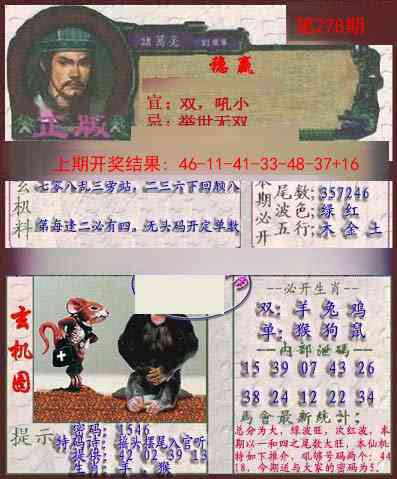 第278期
諸葛亮
稳赢
宜：双，吼小
忌：举世无双
正版
上期开奖结果：46-11-41-33-48-37+16
玄机料
七零八乱三旁站，二三六下回顾八
第每逢二必有四。无头码开定单数
本期必开
尾数：357246
波色：绿 红
五行：木 金 土
玄机图
--必开生肖--
双：羊 兔 鸡
单：猴 狗 鼠
--内部泄码--
15 39 07 43 26
38 24 12 22 34
馬會最新统计：
总分为大，绿波旺，次红波，本
期以一和四之尾数大旺，本仙机
特如下推介，吼够号码两个：44
18，今期送与大家的密码为5。
提示
密码：1546
特码诗：摇头摆尾入官听
提供：42 02 39 13
生肖：羊、猴